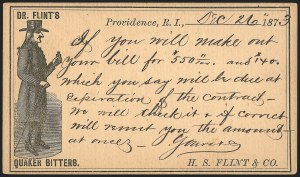 DR. FLINT'S
QUAKER BITTERS.
Providence, R. I., Dec 26 1873
If you will make out
your bill for 550 m. and 40.
which you say will be due at
Expiration of the contract—
we will check it & if correct
will remit you the amount—
at once— Yours
H. S. FLINT & CO.